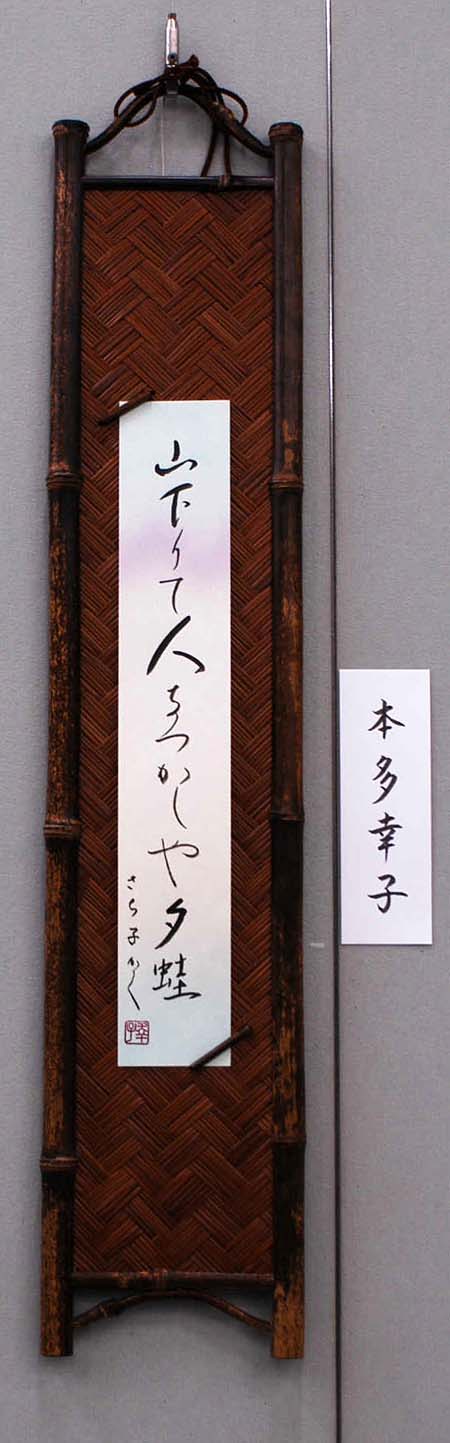 山下りて人なつかしや夕蛙
さち子かく
本多幸子